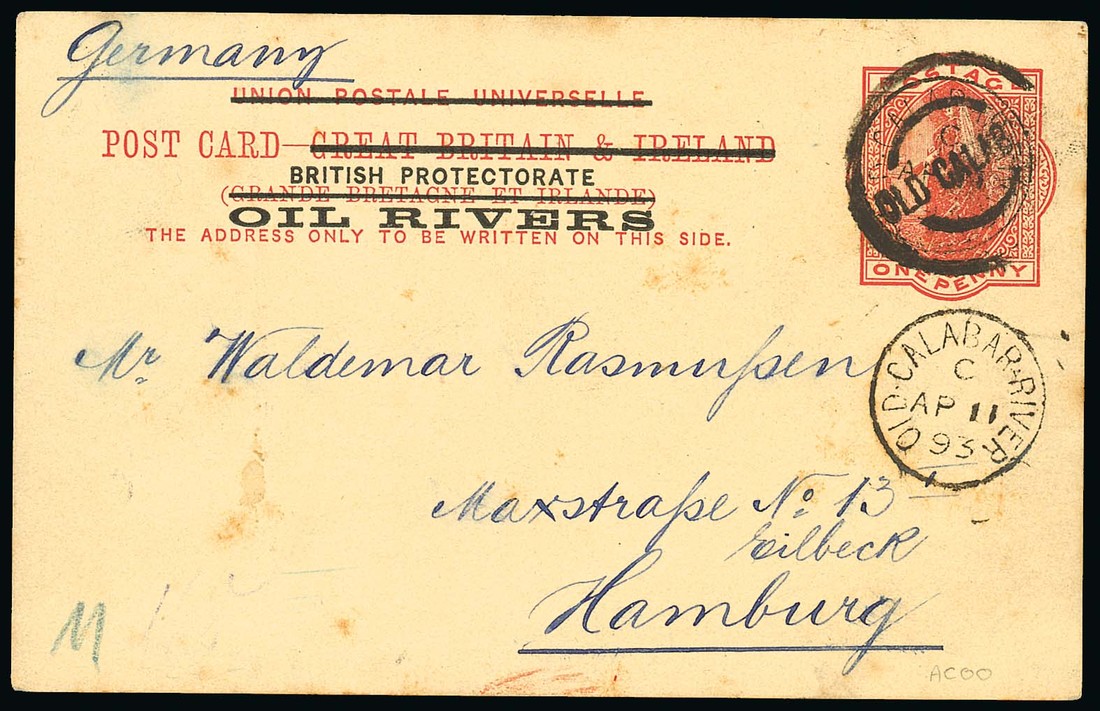 Germany
UNION POSTALE UNIVERSELLE
POST CARD—GREAT BRITAIN & IRELAND
BRITISH PROTECTORATE
(GRANDE BRETAGNE ET IRLANDE)
OIL RIVERS
THE ADDRESS ONLY TO BE WRITTEN ON THIS SIDE.
POSTAGE
OLD·CALABAR
ONE PENNY
OLD·CALABAR·RIVER
C
AP 11
93
Mr Waldemar Rasmußen
Maxstraße No 13
Eilbeck
Hamburg
M
AC00